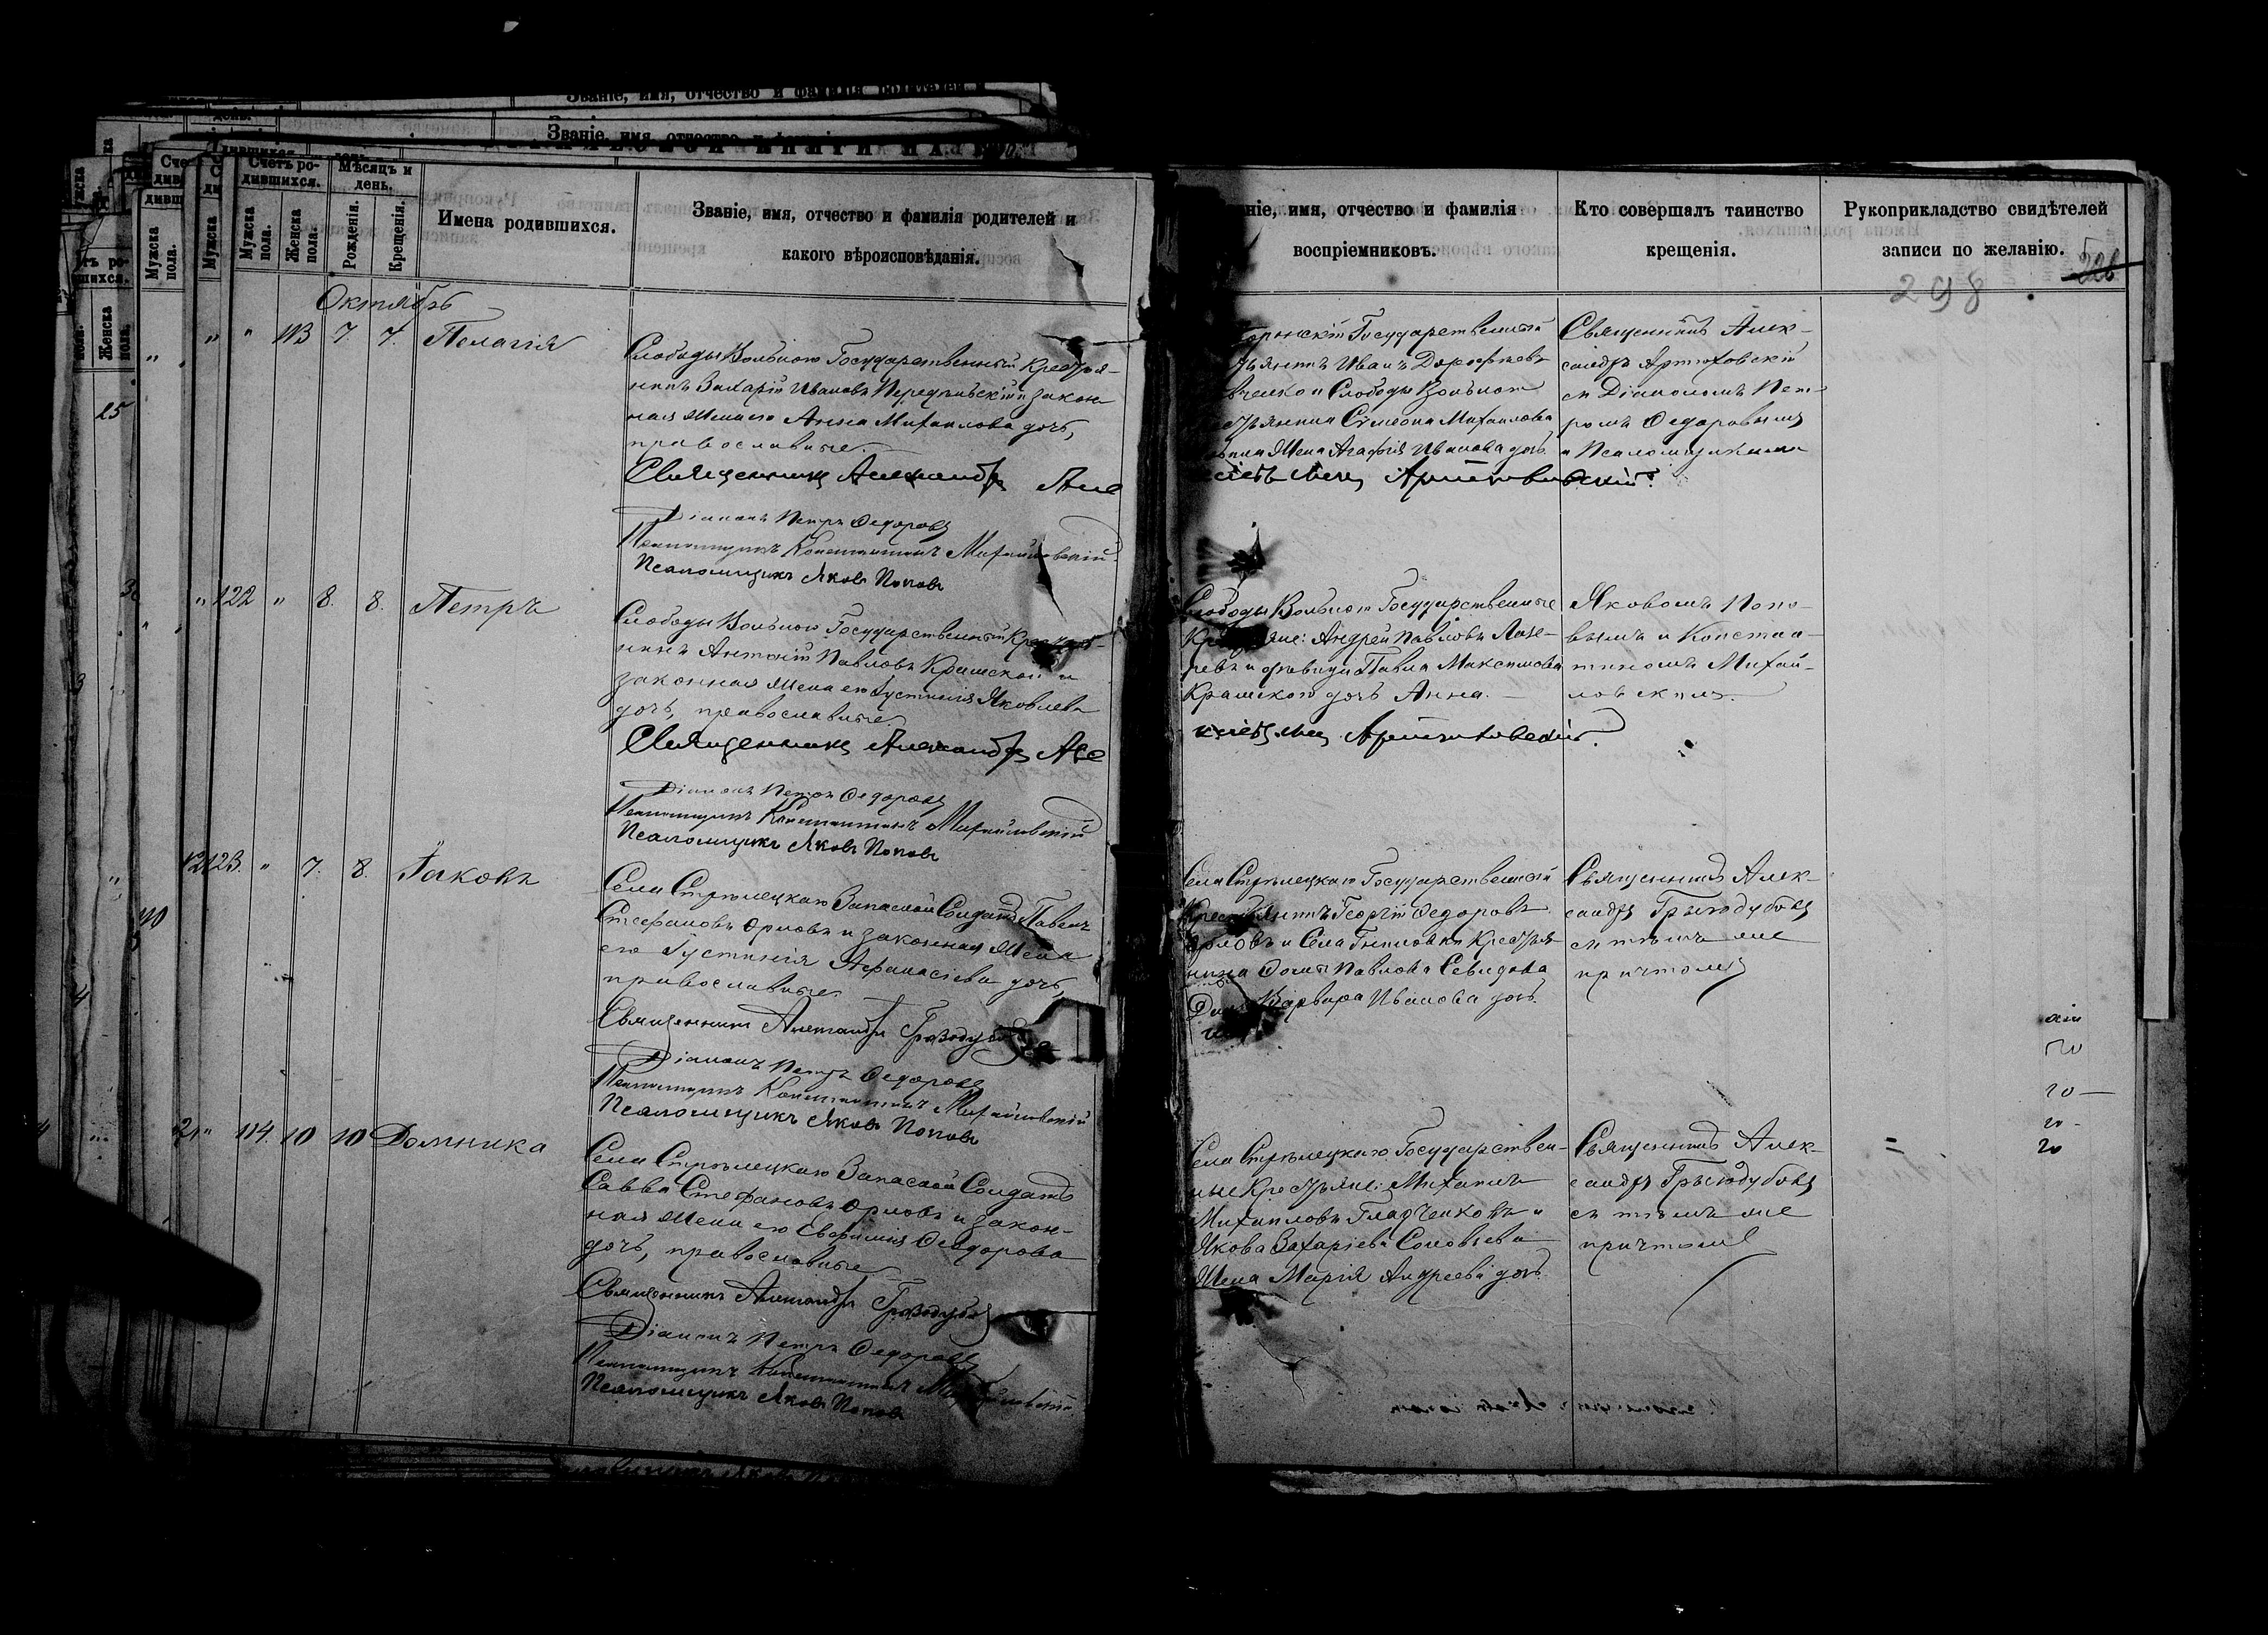 Званіе, имя, отчество и фамилія родителей
Званіе, имя, отчество
Счетъ родившихся.
Мужска пола.
Женска пола.
Мѣсяцъ и день.
Рожденія.
Крещенія.
Имена родившихся.
Званіе, имя, отчество и фамилія родителей и
какого вѣроисповѣданія.
ніе, имя, отчество и фамилія
воспріемниковъ.
Кто совершалъ таинство
крещенія.
Рукоприкладство свидѣтелей
записи по желанію.
298
Октябрь
" 113 7 7. Пелагія
Слободы Вольной Государственный Крестья-
нинъ Захарій Ивановъ и закон
ная Жена его Анна Михаилова дочь,
православные.
Священникъ Александръ
Діаконъ Петръ Федоровъ
Псаломщикъ Константинъ Михайловскій
Псаломщикъ Яковъ Поповъ
Государственный
Иванъ Дорофеевъ
и Слободы Вольной
Симеона Михаилова
Жена Агафія Иванова дочь
Артюховскій
Священникъ Алек-
сандръ Артюховскій
съ Діакономъ Пет-
ромъ Федоровымъ
и Псаломщиками
122 " 8. 8. Петръ
Слободы Вольной Государственный
нинъ Антоній Павловъ Крамской и
законная Жена его Іустинія Яковлева
дочь, православные.
Священникъ Александръ
Діаконъ Петръ Федоровъ
Псаломщикъ Константинъ Михайловскій
Псаломщикъ Яковъ Поповъ
Слободы Вольной Государственные
Андрей Павловъ Лазе-
ревъ и дѣвица Павла Максимова
Крамского дочь Анна.
Артюховскій.
Яковомъ Попо-
вымъ и Констан-
тиномъ Михай-
ловскимъ.
123. " 7. 8. Іаковъ
Села Стрѣлецкаго Запасной Солдатъ Павелъ
Стефановъ Орловъ и законная Жена
его Іустинія Афанасіева дочь,
православные.
Священникъ Александръ Грызодубовъ
Діаконъ Петръ Федоровъ
Псаломщикъ Константинъ Михайловскій
Псаломщикъ Яковъ Поповъ
Села Стрѣлецкаго Государственный
Крестьянинъ Георгій Федоровъ
Орловъ и Села Крестья-
нина Фомы Павлова
Варвара Иванова дочь.
Священникъ Алек-
сандръ Грызодубовъ
съ тѣмъ же
причтомъ
" 114. 10 10 Домника
Села Стрѣлецкаго Запасной Солдатъ
Савва Стефановъ Орловъ и закон-
ная Жена его Евфимія Феодорова
дочь, православные
Священникъ Александръ Грызодубовъ
Діаконъ Петръ Федоровъ
Псаломщикъ Константинъ
Псаломщикъ Яковъ Поповъ
Села Стрѣлецкаго Государствен-
ные Крестьяне: Михаилъ
Михаиловъ Гладченковъ и
Якова Захаріева Соловьева
Жена Марія Андреева дочь.
Священникъ Алек-
сандръ Грызодубовъ
съ тѣмъ же
причтомъ
20
20
20